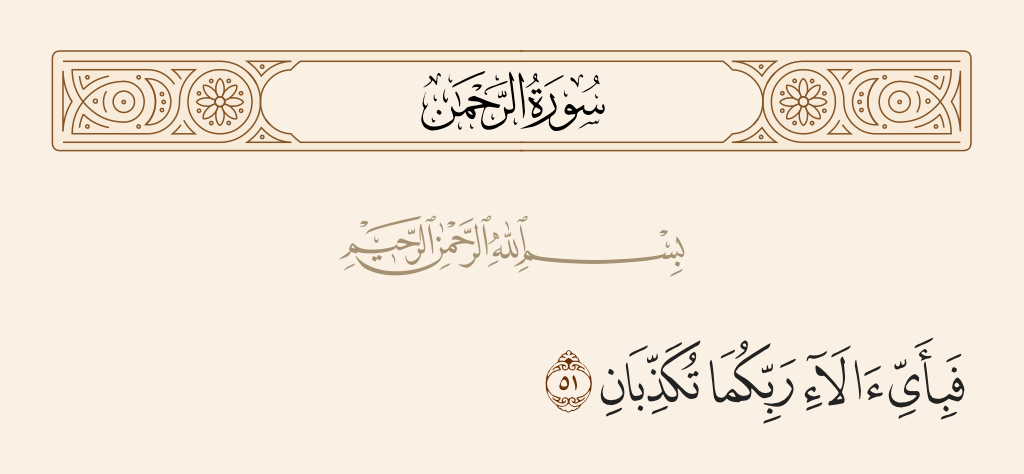 سُورَةُ الرَّحْمَٰن
بِسْمِ ٱللَّهِ ٱلرَّحْمَٰنِ ٱلرَّحِيمِ
فَبِأَىِّ ءَالَآءِ رَبِّكُمَا تُكَذِّبَانِ ٥١